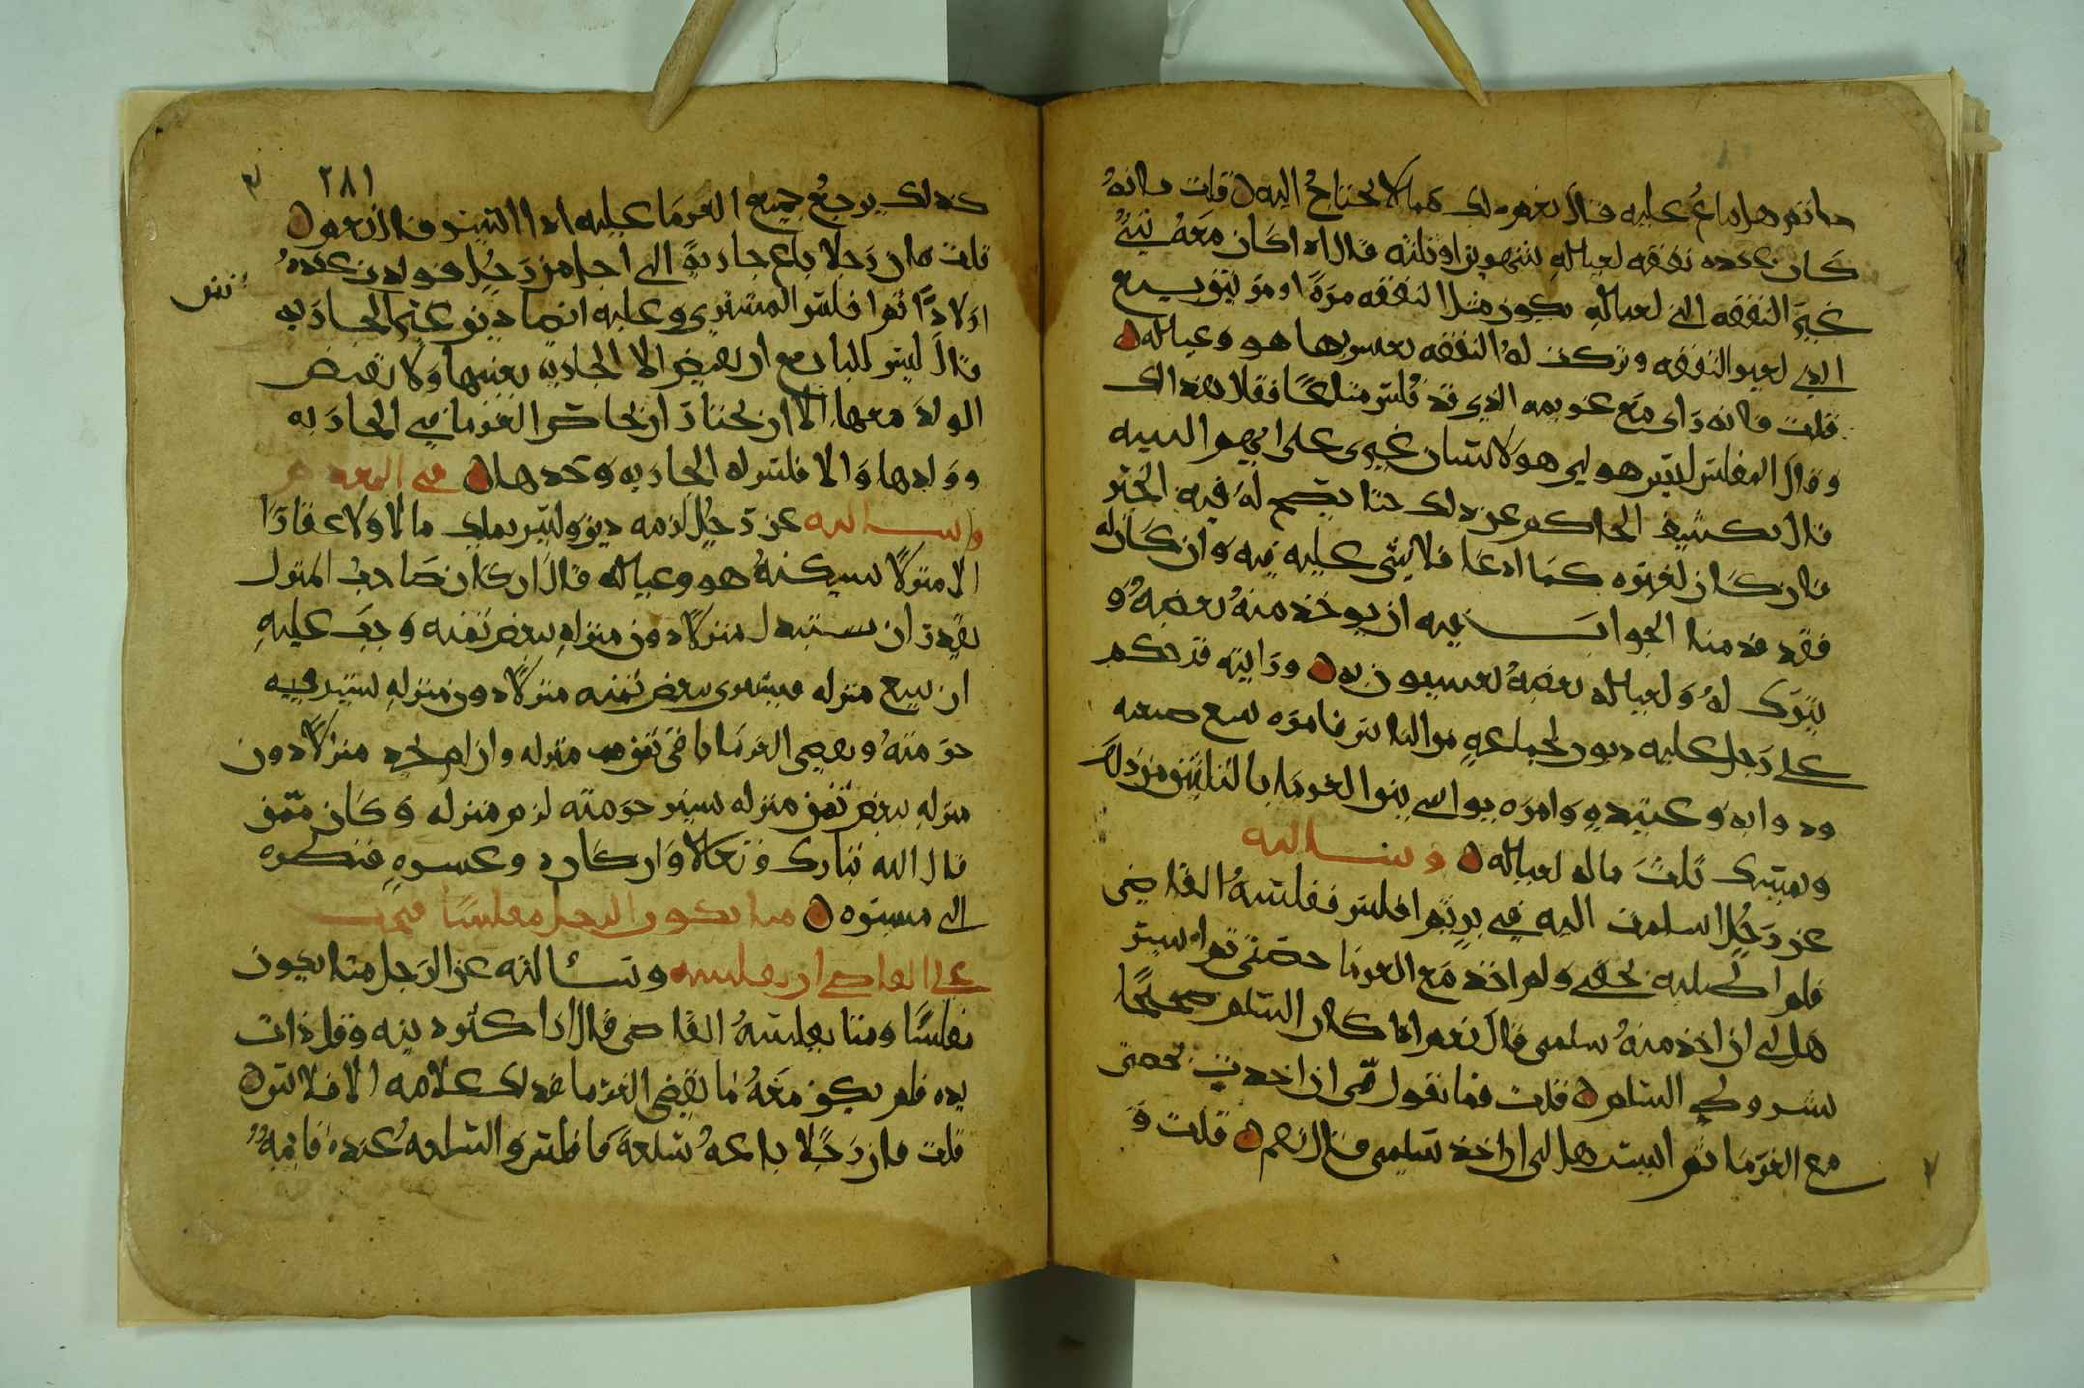 حانتو هل يباع عليه قال نعم ذلك مما لا يحتاج اليه قلت فانه
كان عنده نفقه لعياله شهرين او ثلثه قال اذا كان معه شيء
غير النفقه التي لعياله يكون مثل النفقه مرة او مرتين بيع
الذي لغير النفقه وتركت له النفقه يعيش بها هو وعياله
قلت فانه راى مع غريمه الذي قد فلس متاعا فقال هذا لك
وقال المفلس ليس هو لي هو لانسان غيري على ايهم البينه
قال يكشف الحاكم عن ذلك حتا يصح له فيه الخبر
فان كان لغيره كما ادعا فلا شي عليه فيه وان كان له
فقد قدمنا الجواب فيه ان يوخذ منه بعضه و
يترك له ولعياله بعضه يعيشون به ورايته قد حكم
على رجل عليه ديون لجماعه من الناس فامره ببيع ضيعه
ودوابه وعبيده وامره يواسي بين الغرما بالثلثين من ذلك
ويمسك ثلث ماله لعياله وسالته
عن رجل اسلمت اليه في بر ثم افلس ففلسه القاضي
فلم اطلبه بحقي ولم اخذ مع الغرما حصتي ثم ايسر
هل لي ان اخذ منه سلمي قال نعم اذا كان السلم صحيحا
بشروط السلم قلت فما تقول في ان اخذت بحصتي
مع الغرما ثم ايسر هل لي ان اخذ سلمي قال نعم قلت و
٢٨١
كذلك يرجع جميع الغرما عليه اذا ايسر قال نعم
قلت فان رجلا باع جارية الى اجل من رجل فولدت عنده
اولادا ثم افلس المشتري وعليه ايضا دين غير الجاريه
قال ليس للبايع ان يقبض الا الجاريه بعينها ولا يقبض
الولد معها الا ان يختار ان يحاص الغرما في الجاريه
وولدها والا فليس له الجاريه وحدها في المعدم
وسالته عن رجل لزمه دين وليس يملك مالا ولا عقارا
الا منزلا يسكنه هو وعياله قال ان كان صاحب المنزل
يقدر ان يستبدل منزلا دون منزله ببعض ثمنه وجب عليه
ان يبيع منزله ويشتري ببعض ثمنه منزلا دون منزله يستر فيه
حرمته ويقضي الغرما باقي ثمن منزله وان لم يجد منزلا دون
منزله ببعض ثمن منزله يستر حرمته لزم منزله وكان ممن
قال الله تبارك وتعالا وان كان ذو عسرة فنظرة
الى ميسرة متا يكون الرجل مفلسا ومتى يجب
على القاضي ان يفلسه وسالته عن الرجل متا يكون
مفلسا ومتا يفلسه القاضي قال اذا كثر دينه وقل ذات
يده فلم يكن معه ما يقضي الغرما فذلك علامه الافلاس
قلت فان رجلا باعه سلعة فافلس والسلعه عنده قايمه